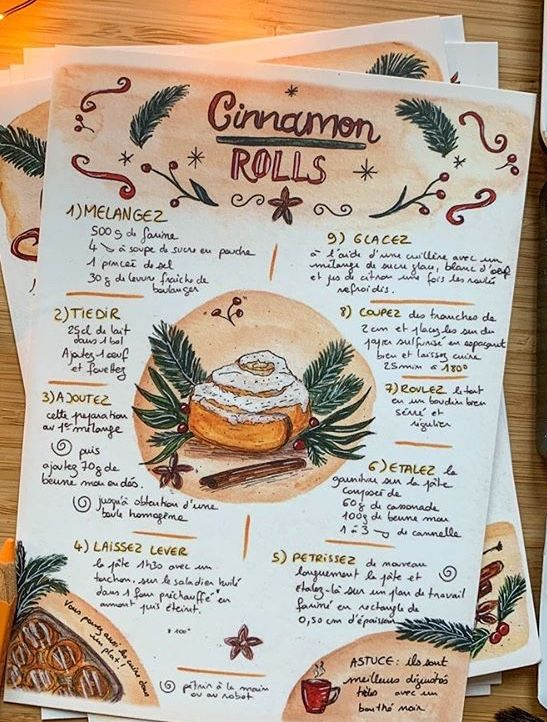 Cinnamon
ROLLS
1) MELANGEZ
500 g de farine
4 à soupe de sucre en poudre
1 pincée de sel
30 g de levure fraîche de
boulanger
2) TIEDIR
25cl de lait
dans 1 bol
Ajoutez 1 oeuf
et fouettez
3) AJOUTEZ
cette préparation
au 1er mélange
puis
ajoutez 70g de
beurre mou en dés.
jusqu'à obtention d'une
boule homogène
4) LAISSEZ LEVER
la pâte 1h30 avec un
torchon, sur le saladier huilé
dans 1 four préchauffé* en
amont puis éteint.
* 100°
5) PETRISSEZ de nouveau
longuement la pâte et
étalez-la sur un plan de travail
fariné en rectangle de
0,50 cm d'épaisseur
6) ETALEZ la
garniture sur la pâte
composée de
60g de cassonade
100g de beurre mou
1 à 3 de cannelle
7) ROULEZ le tout
en un boudin bien
serré et
régulier
8) COUPEZ des tranches de
2 cm et placez les sur du
papier sulfurisé en espaçant
bien et laissez cuire
25 min à 180°
9) GLACEZ
à l'aide d'une cuillère avec un
mélange de sucre glace, blanc d'oeuf
et jus de citron une fois les roulés
refroidis.
Vous pouvez aussi les cuire dans
un plat!
pétrir à la main
ou au robot
ASTUCE: ils sont
meilleurs dégustés
tièdes avec un
bon thé noir